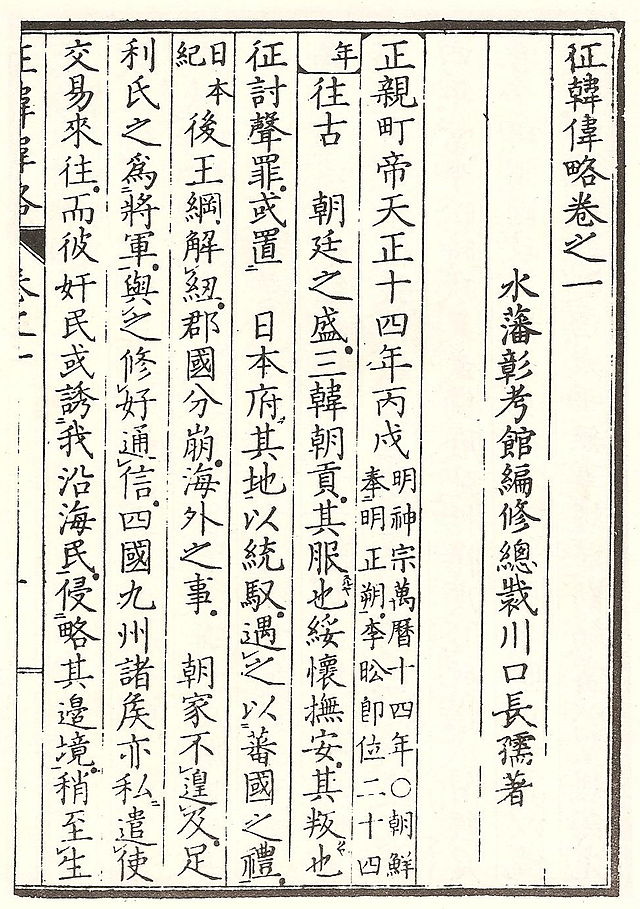 征韓偉略卷之一
水藩彰考館編修總裁川口長孺著
正親町帝天正十四年丙戌明神宗萬曆十四年○朝鮮奉明正朔李昖即位二十四
年往古　朝廷之盛三韓朝貢其服也綏懷撫安其叛也
征討聲罪或置　日本府其地以統馭遇之以蕃國之禮
日本紀後王綱解紐郡國分崩海外之事　朝家不遑及足
利氏之爲將軍與之修好通信四國九州諸矦亦私遣使
交易來往而彼奸民或誘我沿海民侵略其邊境稍至生
征韓偉略　卷之一